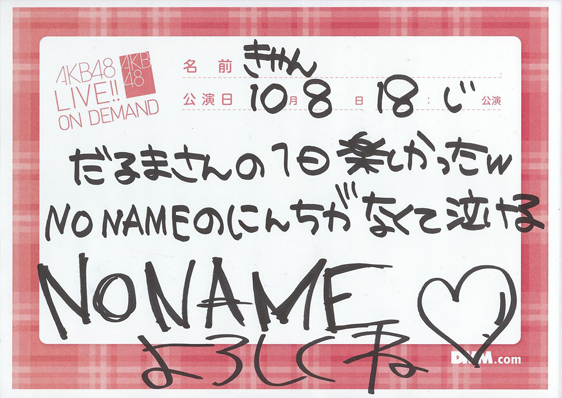 AKB48
LIVE!!
ON DEMAND
AKB
48
名前 きゃん
公演日 10月8日 18:じ 公演
だるまさんの1日楽しかったw
NO NAMEのにんちがなくて泣ける
NO NAME
よろしくね
DMM.com